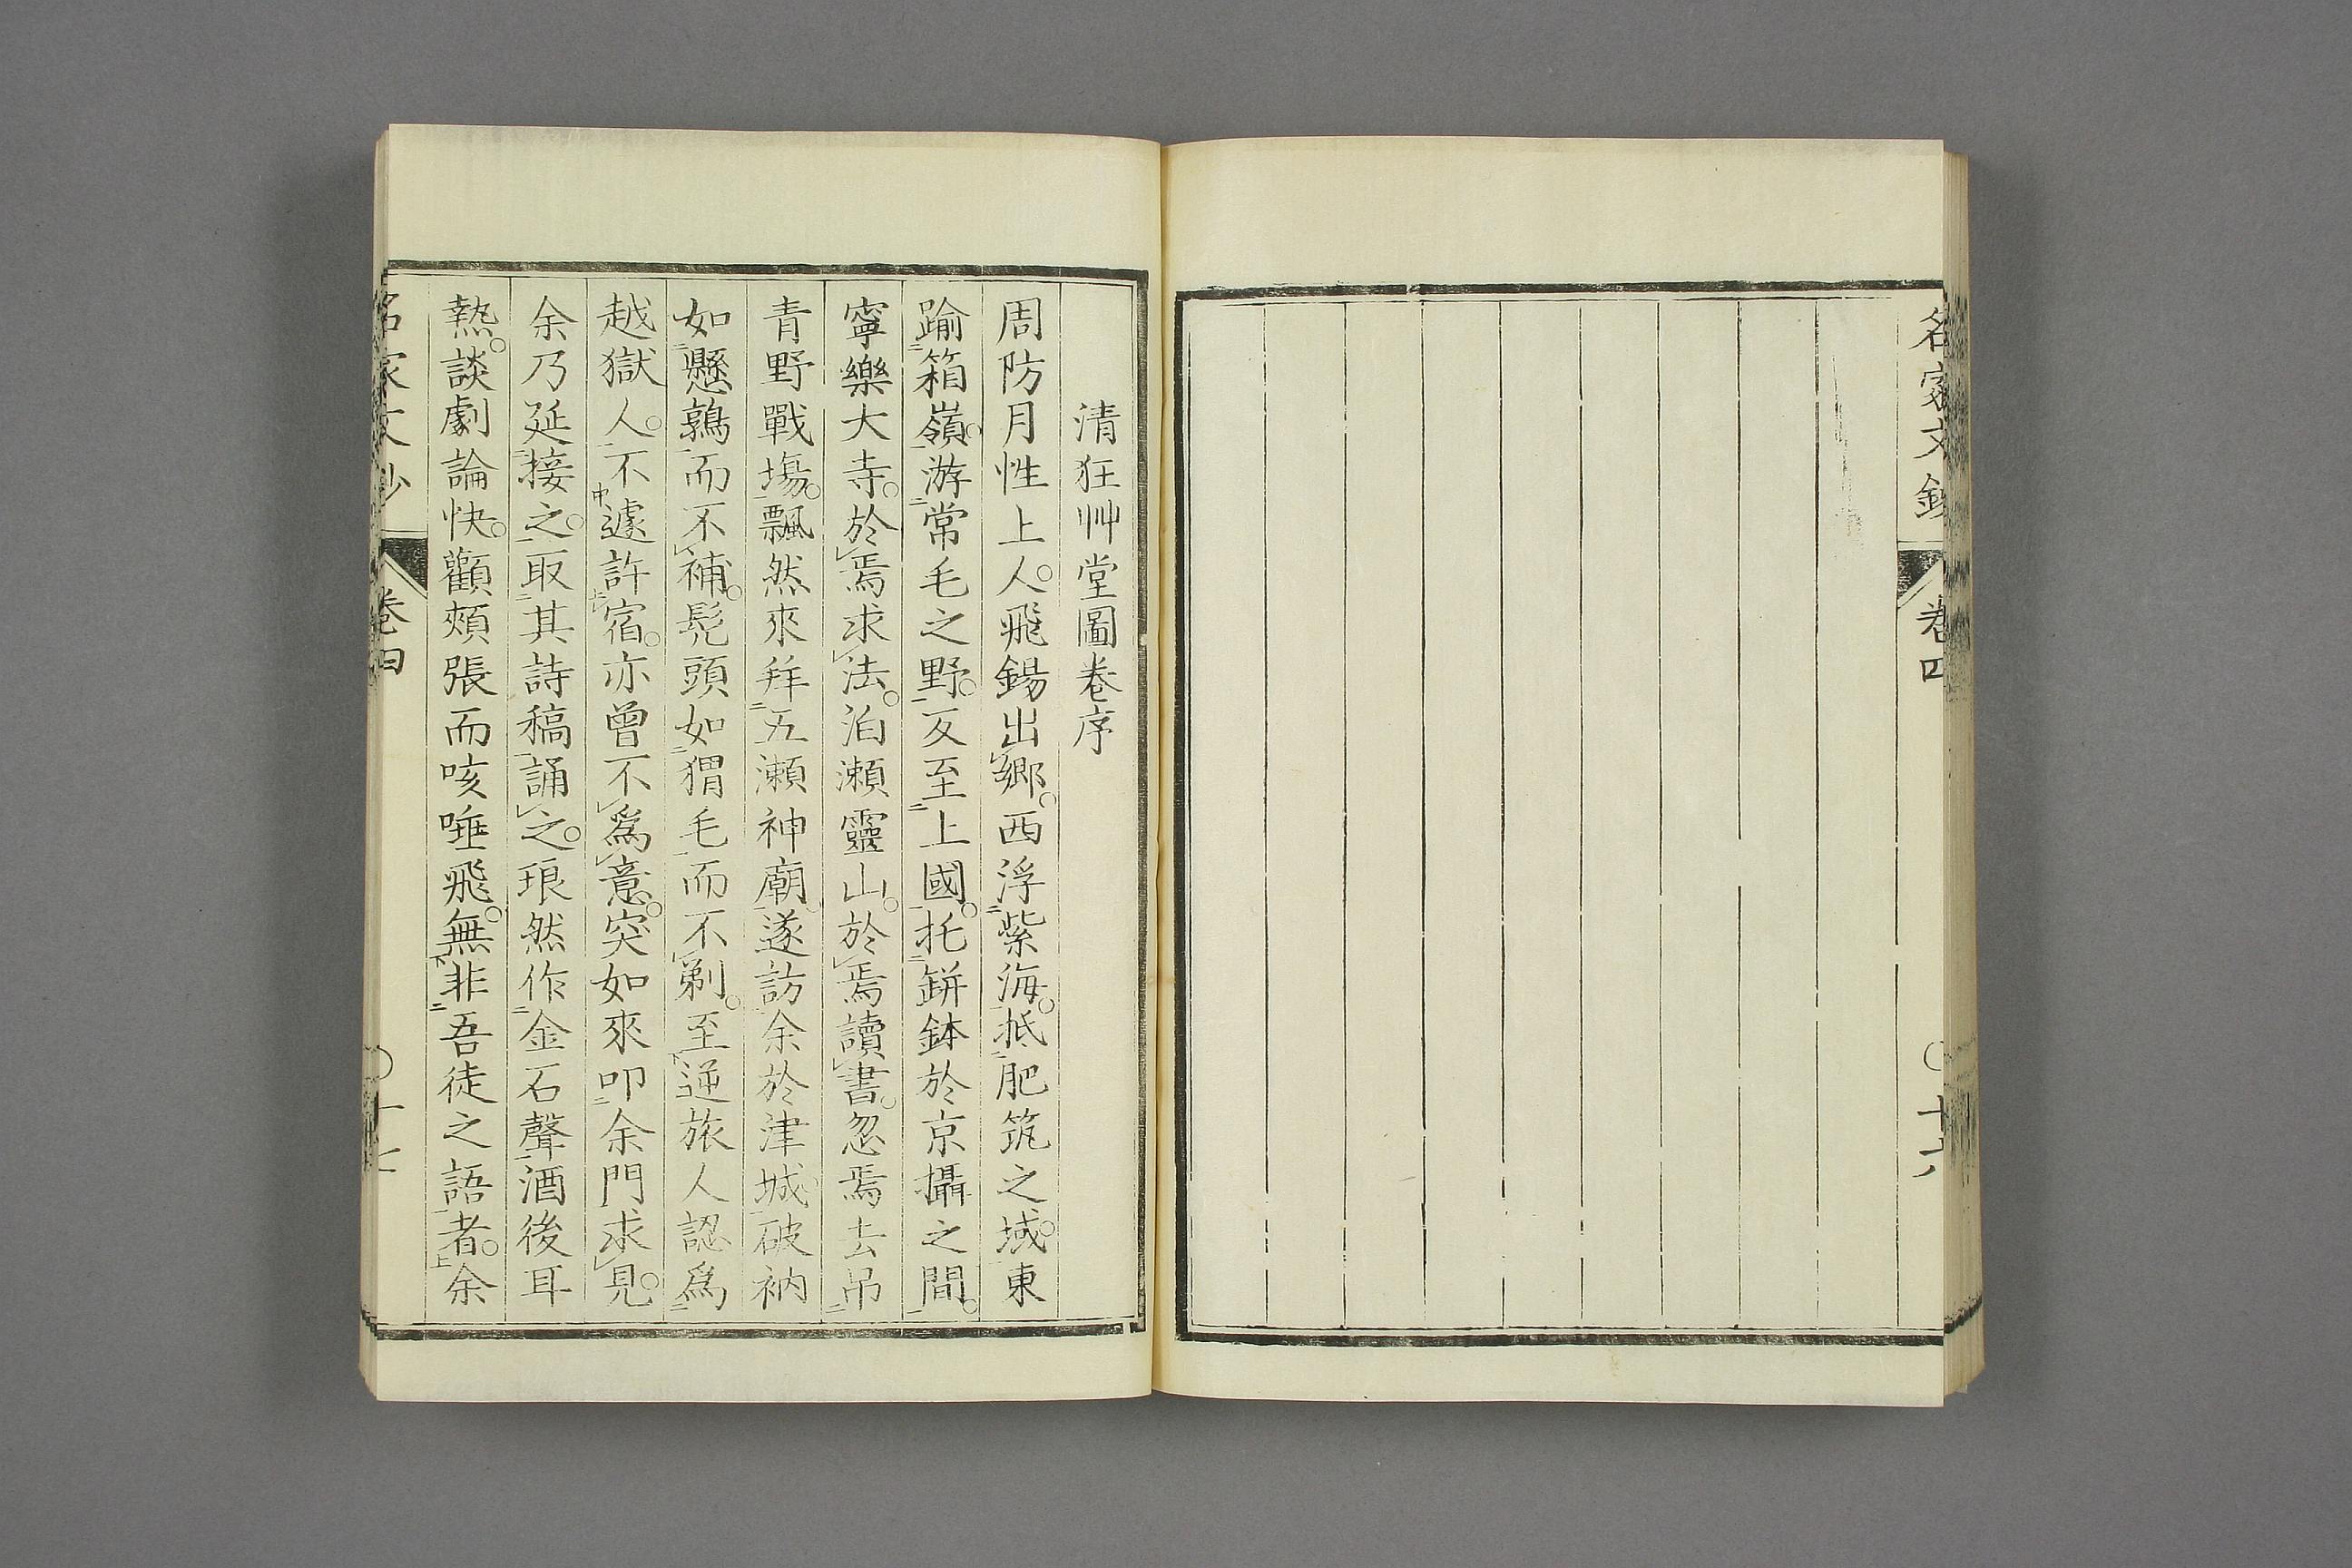 名家文鈔
卷四
十六
清狂艸堂圖卷序
周防月性上人。飛錫出鄉。西浮紫海。抵肥筑之域。東
踰箱嶺。游常毛之野。反至上國。托缾鉢於京攝之間。
寧樂大寺。於焉求法。泊瀨靈山。於焉讀書。忽焉去吊
青野戰場。飄然來拜五瀨神廟。遂訪余於津城。破衲
如懸鶉而不補。髡頭如猬毛而不剃。至逆旅人認爲
越獄人。不遽許宿。亦曾不爲意。突如來叩余門求見。
余乃延接之。取其詩稿誦之。琅然作金石聲。酒後耳
熱。談劇論快。顴頰張而咳唾飛。無非吾徒之語者。余
名家文鈔
卷四
十七